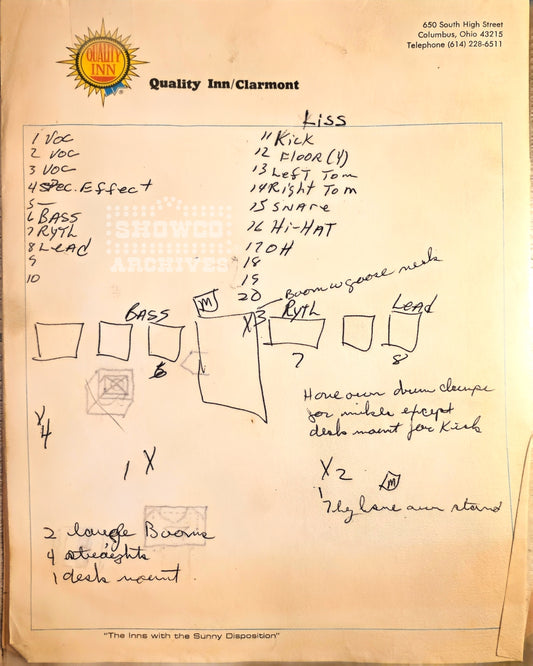 650 South High Street
Columbus, Ohio 43215
Telephone (614) 228-6511
QUALITY
INN
Quality Inn/Clarmont
LISS
1 VOC
2 VOC
3 VOC
4 SPEC. Effect
5 —
6 BASS
7 RYTH
8 LEAD
9
10
11 Kick
12 FLOOR (Y)
13 Left Tom
14 Right Tom
15 SNARE
16 Hi-HAT
17 OH
18
19
20
SHOWCO
ARCHIVES
Boom w goose neck
M
BASS
X3
RYTH
LEAD
6
7
8
Have own drum clamps
for mikes except
desk mount for Kick
X
4
1 X
X2
M
They have own stand
2 large Booms
4 straights
1 desk mount
"The Inns with the Sunny Disposition"